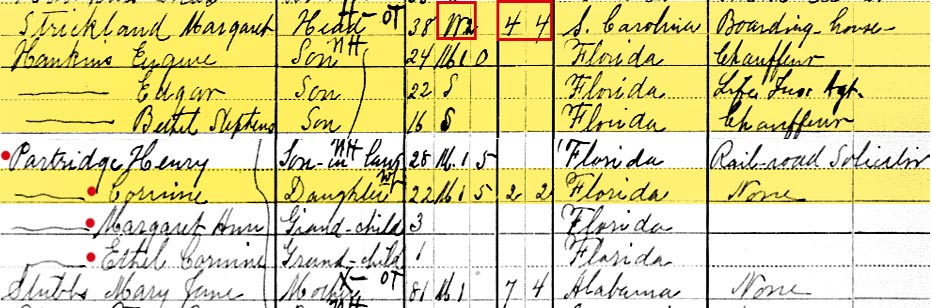 Strickland Margaret Head OT 38 M2 4 4 S. Carolina Boarding-house
Hankins Eugine Son NH 24 M1 0 Florida Chauffeur
—— Edgar Son 22 S Florida Life Ins. Agt.
—— Bethel Stephens Son 16 S Florida Chauffeur
Partridge Henry Son-in-law NH 28 M1 5 Florida Rail-road Solicitor
—— Corinne Daughter 22 M1 5 2 2 Florida None
—— Margaret Ann Grand-child 3 Florida
—— Ethel Corinne Grand-child 1 Florida
Stubbs Mary Jane Mother OT 81 M1 7 4 Alabama None